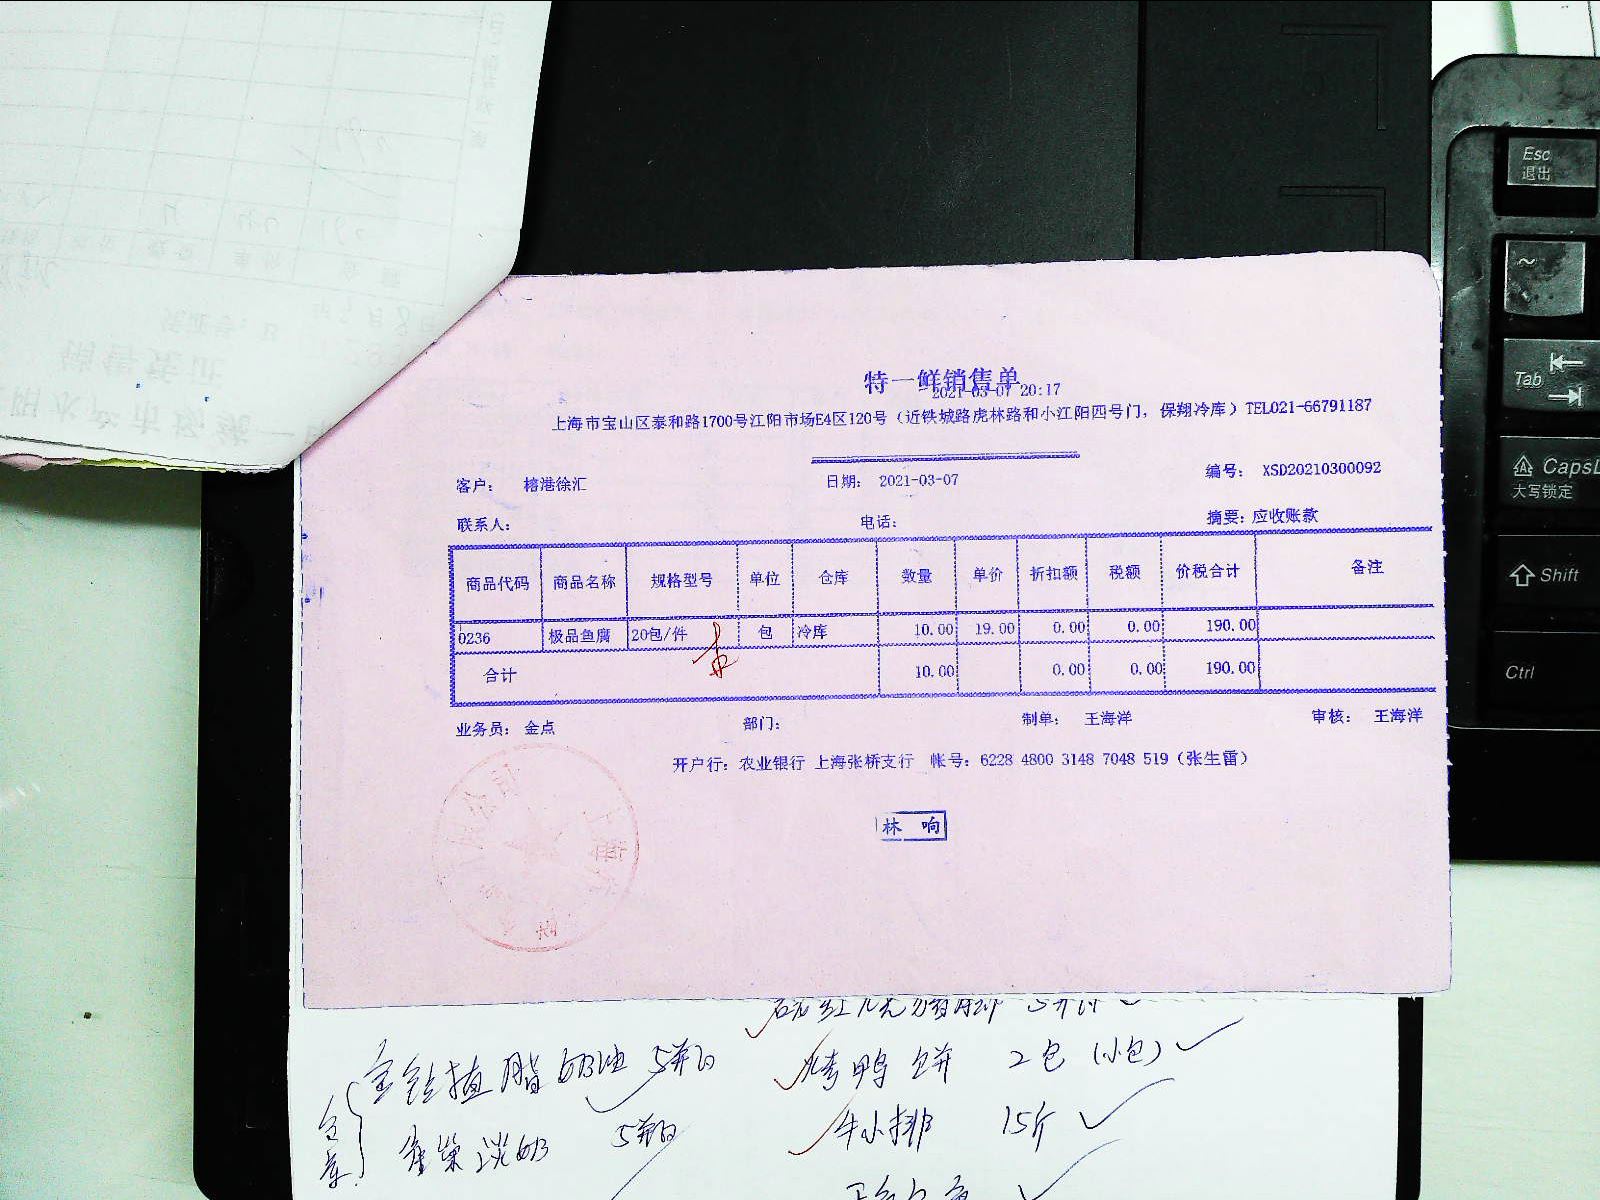 特一鲜销售单
2021-03-07 20:17
上海市宝山区泰和路1700号江阳市场E4区120号（近铁城路虎林路和小江阳四号门，保翔冷库）TEL021-66791187
客户： 榕港徐汇 日期： 2021-03-07 编号： XSD20210300092
联系人： 电话： 摘要：应收账款
商品代码 商品名称 规格型号 单位 仓库 数量 单价 折扣额 税额 价税合计 备注
0236 极品鱼腐 20包/件 包 冷库 10.00 19.00 0.00 0.00 190.00
合计 10.00 0.00 0.00 190.00
业务员： 金点 部门： 制单： 王海洋 审核： 王海洋
开户行：农业银行 上海张桥支行 帐号：6228 4800 3148 7048 519（张生雷）
林 响
植脂奶油 5箱
淡奶 5箱
烤鸭饼 2包（小包）
牛小排 15斤
Esc
退出
~
Tab
CapsL
大写锁定
Shift
Ctrl